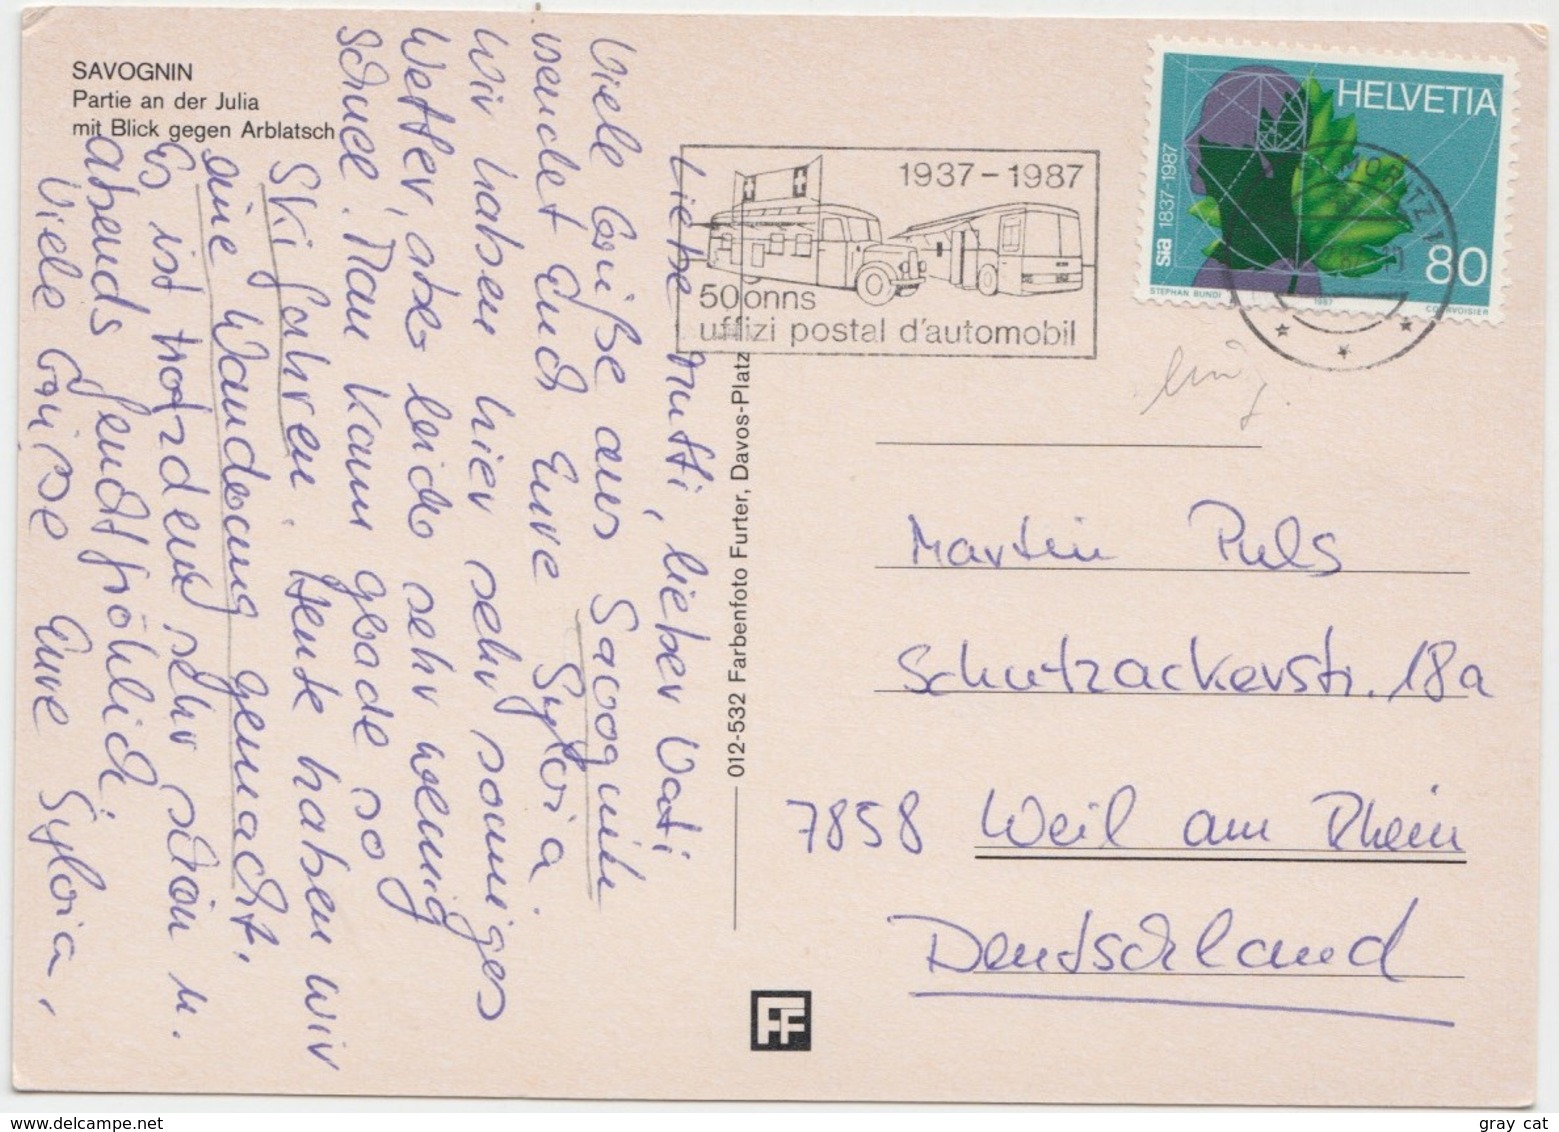 SAVOGNIN
Partie an der Julia
mit Blick gegen Arblatsch
Liebe Mutti, lieber Vati
Viele Grüße aus Savognin
sendet Euch Eure Sylvia.
Wir haben hier sehr sonniges
Wetter, aber leider sehr wenig
Schnee. Man kann grade so
Ski fahren. Heute haben wir
eine Wanderung gemacht.
Es ist trotzdem sehr schön u.
abends feuchtfröhlich.
Viele Grüsse Eure Sylvia,
012-532 Farbenfoto Furter, Davos-Platz
FF
1937-1987
50 onns
uffizi postal d'automobil
HELVETIA
sia 1837-1987
80
STEPHAN BUNDI
1987
COURVOISIER
MORITZ 1
Martin Puls
Schutzackerstr. 18a
7858 Weil am Rhein
Deutschland
gray_cat